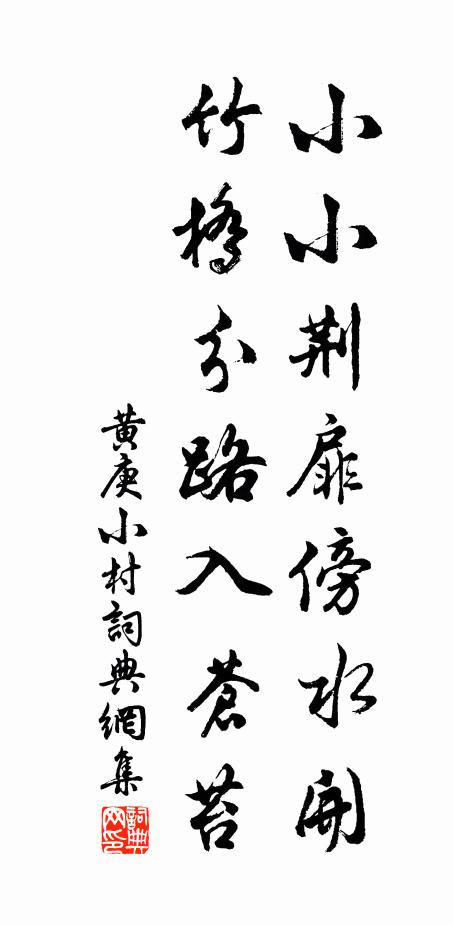 小小荆扉傍水開
竹橋分路入蒼苔
黄庚小村詞典網集
詞典网印